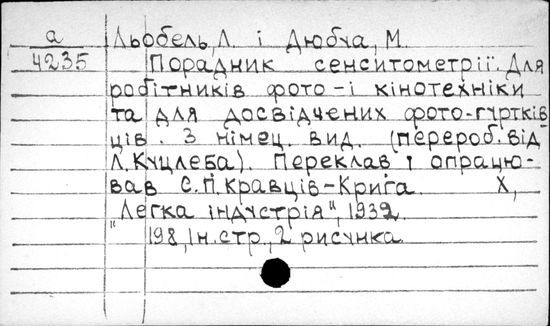 а
4235
Льобель, Л. і Дюбча, М.
Порадник сенситометрії. Для
робітників фото-і кінотехніки
та для досвідчених фото-гуртків-
ців. З німец. вид. (перероб. від
Л. Куцлеба). Переклав і опрацю-
вав Є.П. Кравців-Крига. Х,
"Легка індустрія", 1932
198, Ін. стр., 2 рисунка.